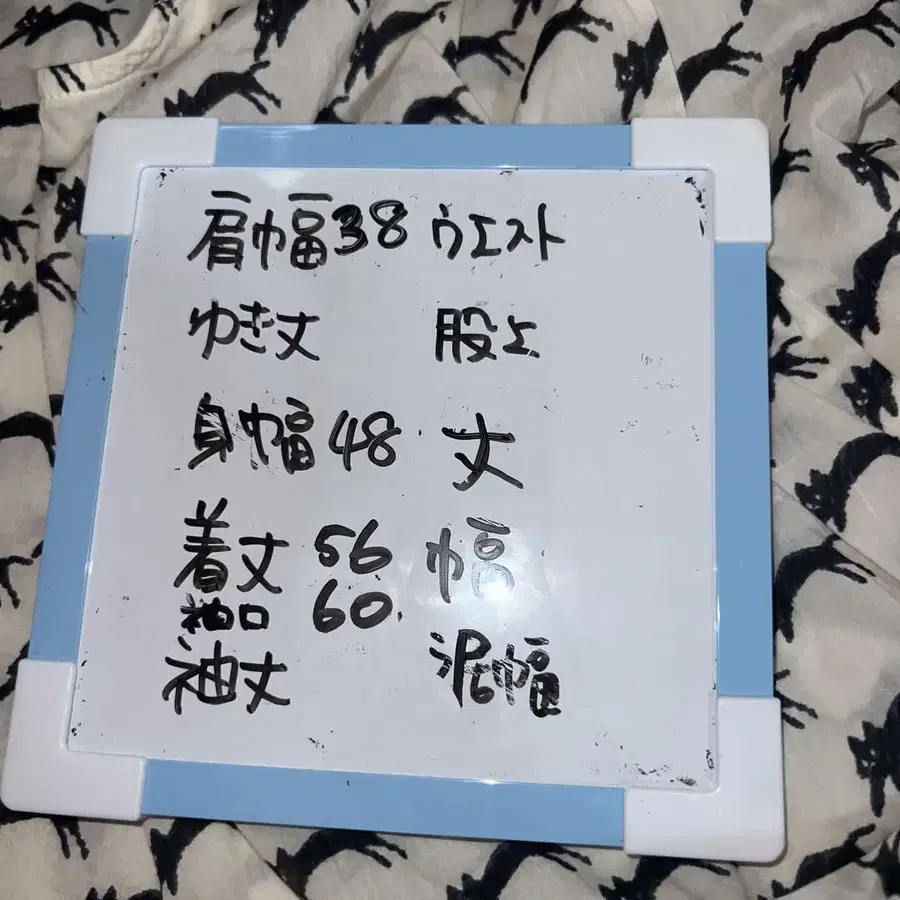 肩幅38 ウエスト
ゆき丈 股上
身幅48 丈
着丈 56 幅
袖口 60
袖丈 泥幅